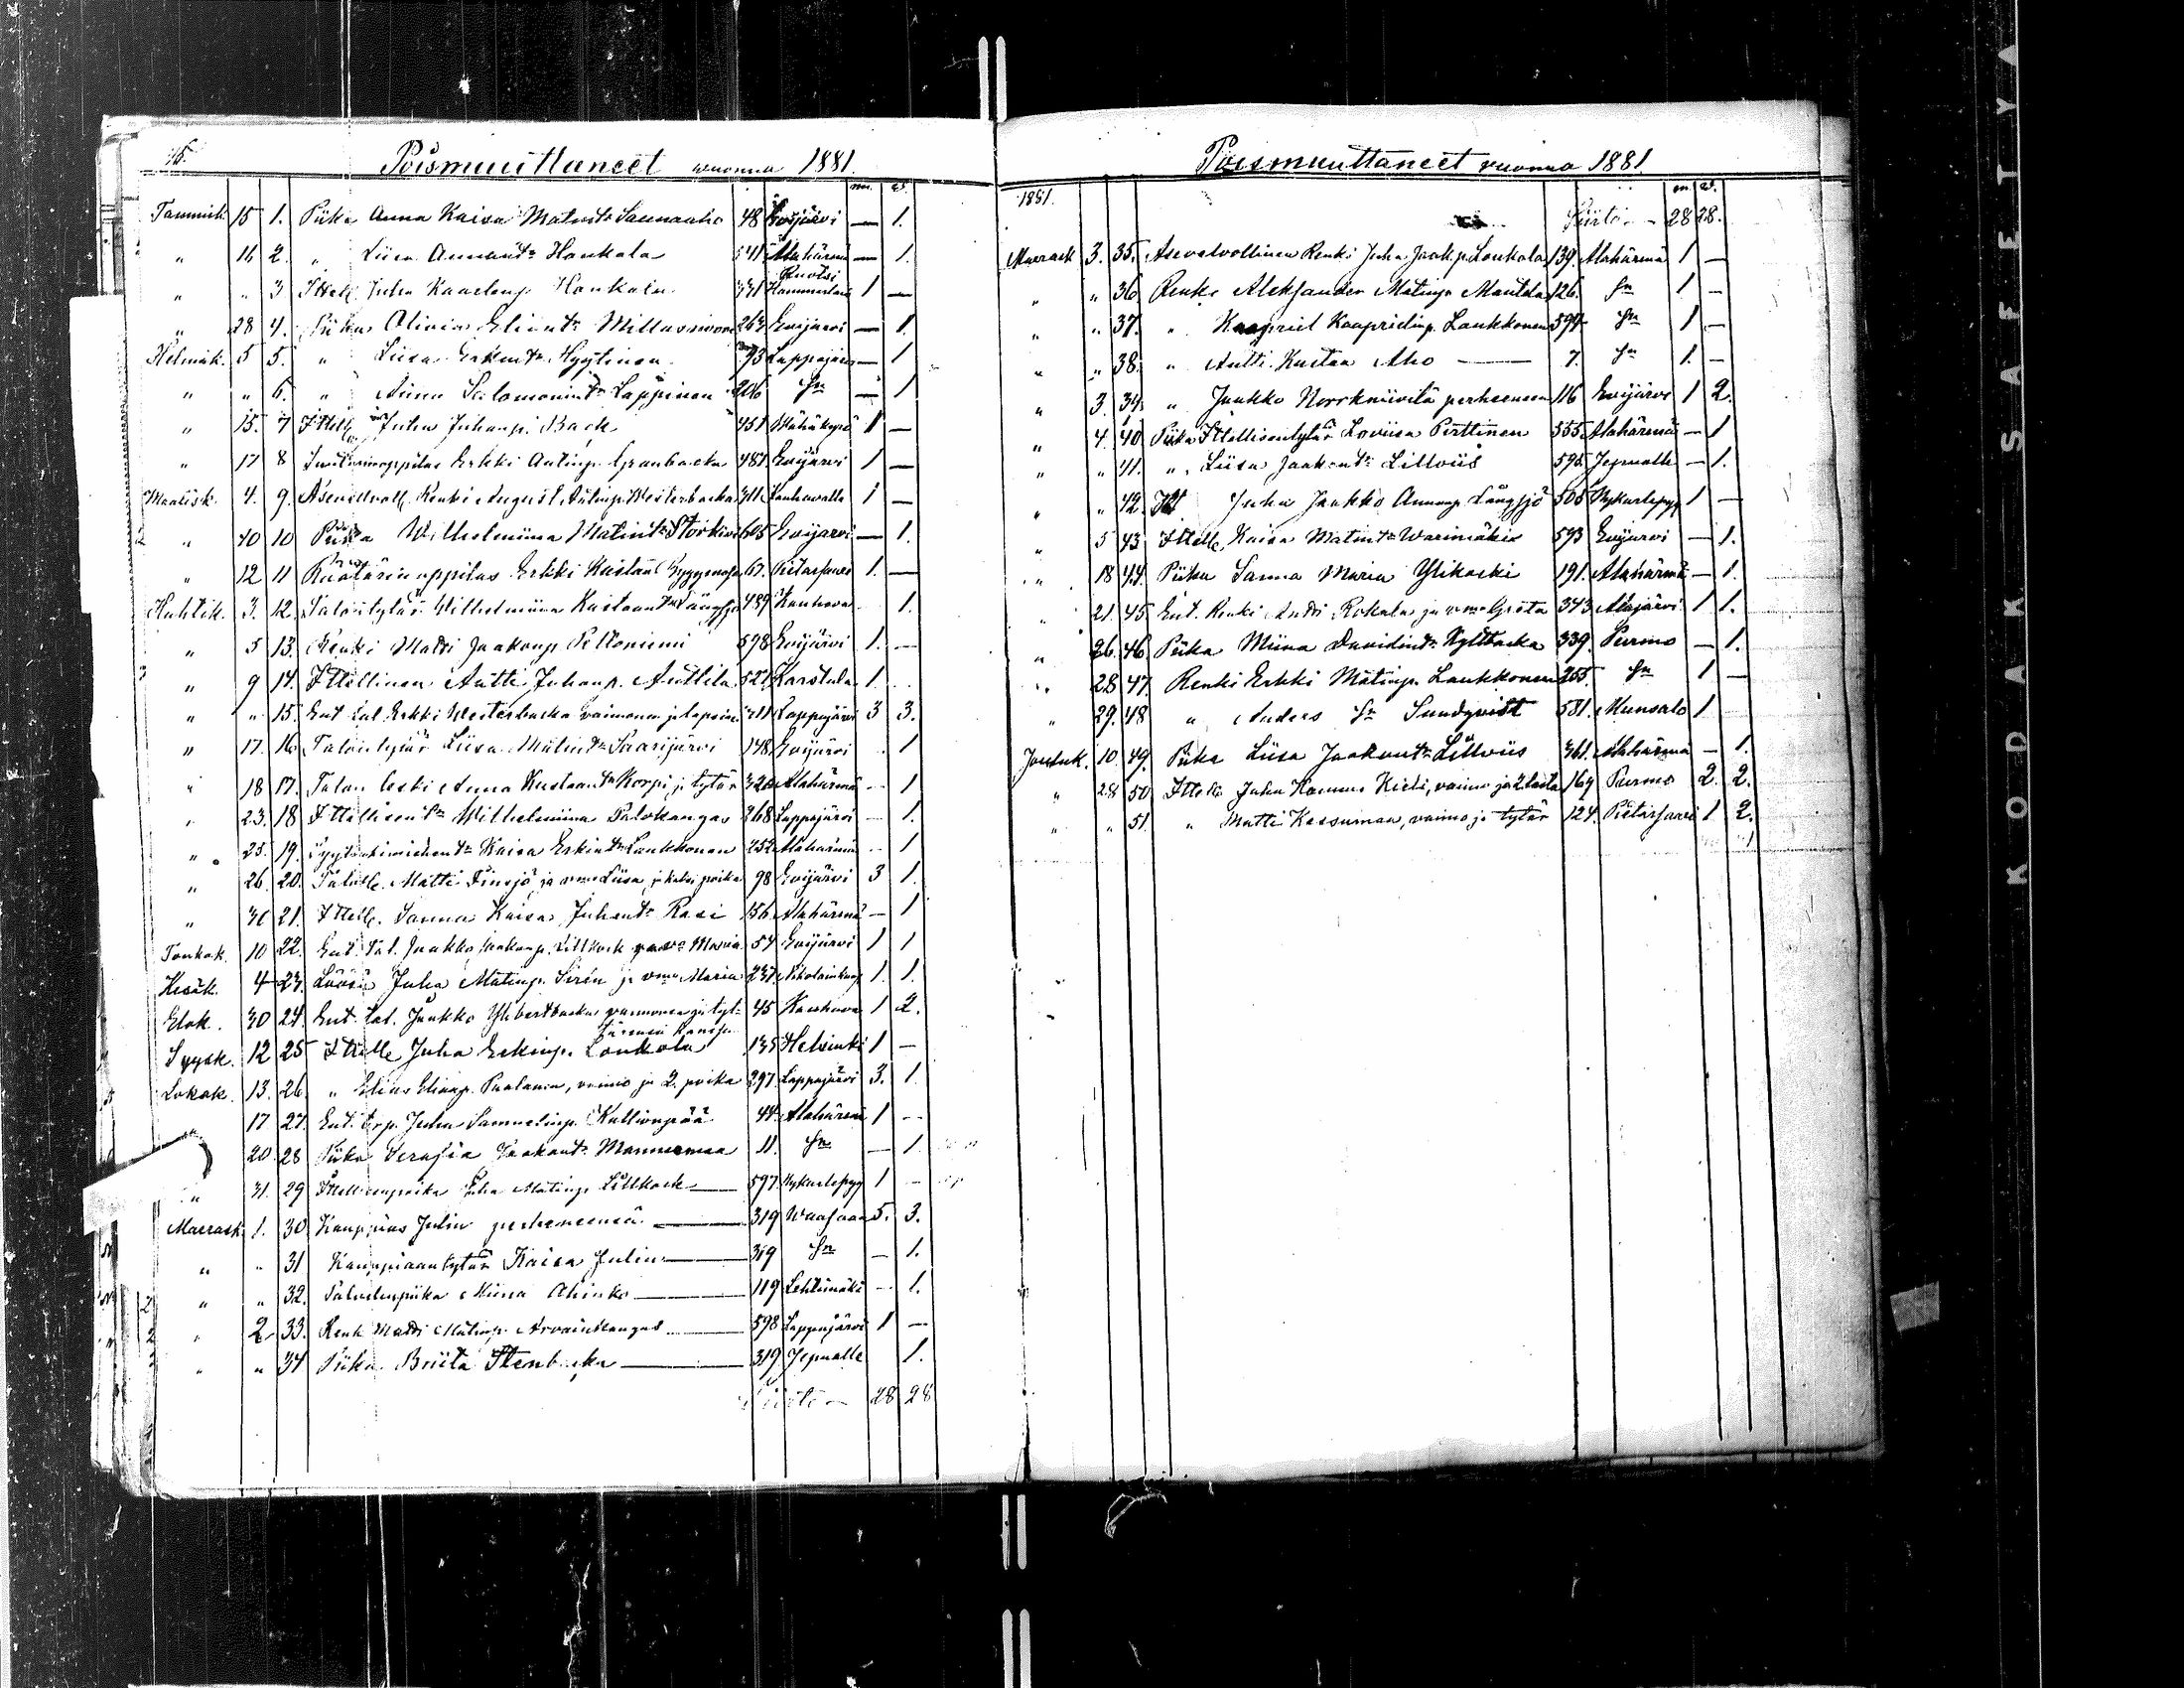 Poismuuttaneet vuonna 1881.
m. v.
Tammik. 15 1. Piika Anna Kaisa Matint: Saunaaho 48 Evijärvi — 1.
" 16 2. " Liisa Annant: Honkala 541 Alahärmä — 1.
" " 3 Ittell. Juha Kaarlenp. Honkala 331 Ruotsi Hammerland 1 —
" 28 4. Piika Olivia Eliint: 263 Evijärvi — 1.
Helmik. 5 5. " Liisa Erkint: Hyytinen 93 Lappajärvi — 1
" " 6. " Anna Salomonint: Lappinen 206 Sn — 1
" 15. 7 Ittell. Juha Juhanp. Back 451 1 —
" 17 8 Erkki Antinp. Granbacka 481 Evijärvi 1 —
Maalisk. 4. 9. Asevelvoll. Renki August Antinp. Westerbacka 311 Kauhavalle 1 —
" 10 10 Piika Wilhelmiina Matint: 605 Evijärvi — 1.
" 12 11 Räätärin oppilas Erkki Kustaanp. 67. Pietarsaari 1. —
Huhtik. 3. 12. Talontytär Wilhelmiina Kustaant: Långsjö 489 Kauhava 1.
" 5 13. Renki Matti Jaakonp. Peltoniemi 598 Evijärvi 1. —
" 9 14. Ittellinen Antti Juhanp. Anttila 521 Karstula 1.
" " 15. Ent. tal. Erkki Westerbacka vaimonen ja lapsin. 311 Lappajärvi 3 3.
" 17. 16 Talontytär Liisa Matint: Saarijärvi 148 Evijärvi 1
" 18 17. Talon leski Anna Kustaant: Korpi, j. tytär 320 Alahärmä — 1
" 23. 18 Ittellisent: Wilhelmiina Palokangas 268 Lappajärvi — 1.
" 25. 19. Kaisa Erkint: Laukkonen 252 Alahärmä — 1
" 26. 20. Talolle. Matti Finnsjö ja vmo Liisa, j. kaksi poika 98 Evijärvi 3 1.
" 30 21. Ittell. Sanna Kaisa Juhant: Rasi 156 Alahärmä — 1
Toukok. 10 22. Ent. Tal. Jaakko Jaakonp. Lillkack ja vo Maria 54 Evijärvi 1 1
Kesäk. 4 23. Juha Matinp. Sirén ja vmo Maria 237 Nikolainkaup 1. 1.
Elok. 30 24. Ent. tal. Jaakko vaimonen ja tyt- 45 Kauhava 1 2.
tärensä kanssa
Syysk. 12 25 Ittelle Juha Erkinp. Loukola 135 Helsinki 1 —
Lokak. 13. 26. " Elias Eliaap. Paalanen, vaimo ja 2. poika 297. Lappajärvi 3. 1
17 27. Ent. torp. Juha Samuelinp. Kallionpää 44. Alahärmä 1 —
20. 28 Piika Serafia Jaakont: Mannermaa 11. Sn — 1.
" 31. 29 Ittellisenpoika Juha Matinp. Lillkack — 597. Nykarlepyy 1 —
Marrask. 1. 30 Kauppias Julin perheneensä — 319 Waasaan 5. 3.
" " 31 Kauppiaantytär Kaisa Julin — 319 Sn — 1.
" " 32. Palveluspiika Miina Ahinko — 119 Lehtimäki — 1.
" 2. 33. Renk. Matti Matinp. Arvainkangas — 598 Lappajärvi 1 —
" " 34 Piika Briita Stenbacka — 319 Jepualle 1.
Siirto — 28 28
Poismuuttaneet vuonna 1881.
1881. m. v.
Siirto — 28 28.
Marrask 3. 35. Asevelvollinen Renki Juha Jaak.p. Loukola 139. Alahärmä 1 —
" " 36 Renki Aleksander Matinp. Mantila 126. Sn 1 —
" " 37. " Kaapriel Kaaprielinp. Laukkonen 594 Sn 1 —
" " 38. " Antti Kustaa Aho — 7. Sn 1. —
" 3. 39. " Jaakko perheneensä 116 Evijärvi 1 2.
" 4. 40 Piika Ittellisentytär Loviisa Perttinen 555. Alahärmä — 1
" " 41. " Liisa Jaakont: Lillviis 595. Jepualle — 1.
" " 42. Itt Juha Jaakko Annanp. Långsjö 505 Nykarlepyy 1 —
" 5 43 Ittelle. Kaisa Matint: Warimäkiä 593 Evijärvi — 1.
" 18 44. Piika Sanna Maria Ylikoski 191. Alahärmä — 1.
" 21. 45. Ent. Renki Antti Rokala ja vmo Greta 343 Alajärvi 1 1.
" 26. 46 Piika Miina Davidint: Nyltbacka 339. Purmo — 1.
" 28 47. Renki Erkki Matinp. Laukkonen 255. Sn 1 —
" 29. 48 " Anders Sn Sundqvist 581. Munsalo 1
Jouluk. 10. 49. Piika Liisa Jaakont: Lillviis 361. Alahärmä — 1.
" 28 50 Ittelle Juha Hannus Kieli, vaimo ja 2 lasta 169 Purmo 2. 2.
" " 51. " Matti Kessuman, vaimo ja tytär 124. Pietarsaari 1 2.
KODAK SAFETY